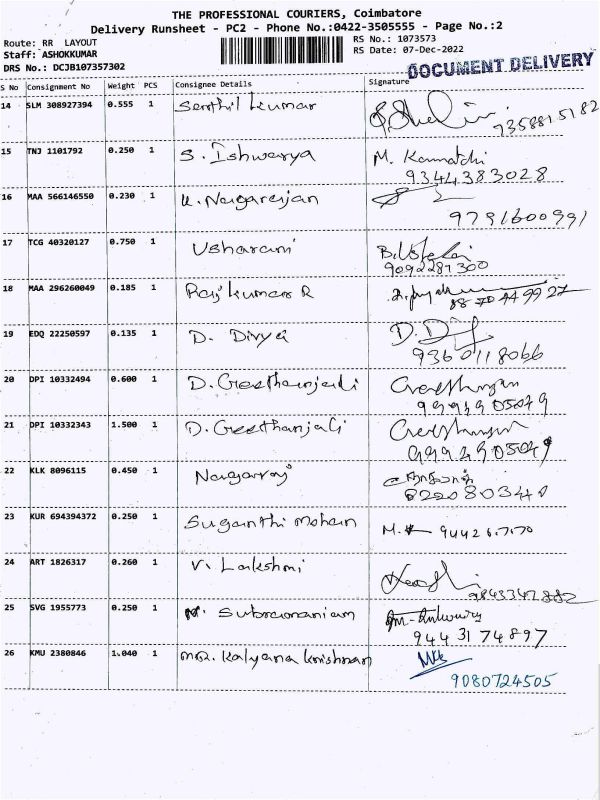 THE PROFESSIONAL COURIERS, Coimbatore
Delivery Runsheet - PC2 - Phone No.:0422-3505555 - Page No.:2
Route: RR LAYOUT
RS No.: 1073573
Staff: ASHOKKUMAR
RS Date: 07-Dec-2022
DRS No.: DCJB107357302
DOCUMENT DELIVERY
S No Consignment No Weight PCS Consignee Details Signature
14 SLM 308927394 0.555 1 Senthil kumar
9358815182
15 TNJ 1101792 0.250 1 S. Ishwarya M. Kamatchi
9344383028
16 MAA 566146550 0.230 1 K. Nagarajan
9791600991
17 TCG 40320127 0.750 1 Usharani
9092287300
18 MAA 296260049 0.185 1 Raj kumar R
88 70 44 99 27
19 EDQ 22250597 0.135 1 D. Divya D. D
9360118066
20 DPI 10332494 0.600 1 D. Geethanjali
9994905049
21 DPI 10332343 1.500 1 D. Geethanjali
9994905049
22 KLK 8096115 0.450 1 Nagaraj
8220803440
23 KUR 694394372 0.250 1 Suganthi Mohan M. 94426.7.70
24 ART 1826317 0.260 1 V. Lakshmi
9843347882
25 SVG 1955773 0.250 1 Subramaniam
9443174897
26 KMU 2380846 1.040 1 MR. Kalyana krishnan
9080724505